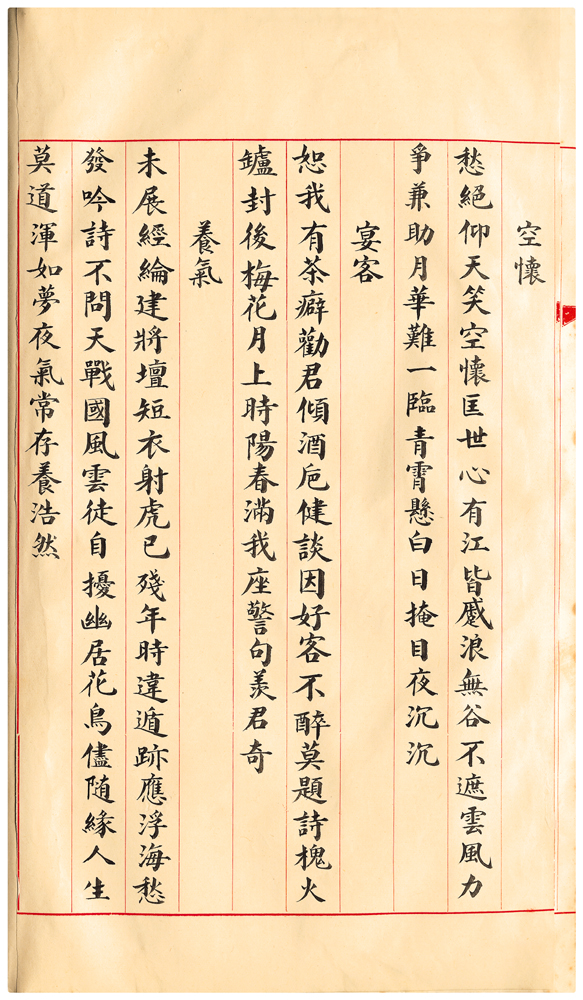 空懷
愁絕仰天笑空懷匡世心有江皆蹙浪無谷不遮雲風力
爭兼助月華難一臨青霄懸白日掩目夜沉沉
宴客
恕我有茶癖勸君傾酒卮健談因好客不醉莫題詩槐火
鑪封後梅花月上時陽春滿我座警句羨君奇
養氣
未展經綸建將壇短衣射虎已殘年時違遁跡應浮海愁
發吟詩不問天戰國風雲徒自擾幽居花鳥儘随緣人生
莫道渾如夢夜氣常存養浩然